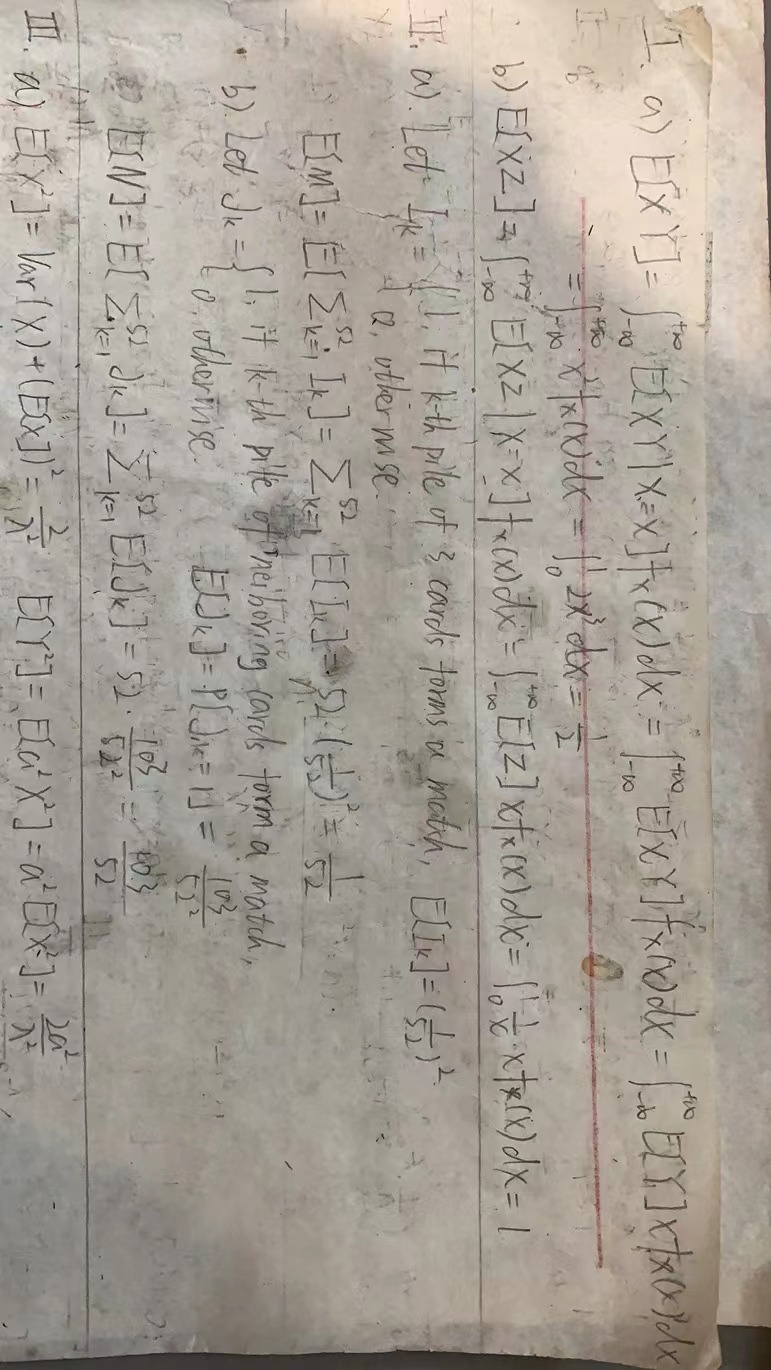 I. a) E[XY] = ∫_{-∞}^{+∞} E[XY|X=x] f_X(x)dx = ∫_{-∞}^{+∞} E[xY] f_X(x)dx = ∫_{-∞}^{+∞} E[Y] x f_X(x)dx
= ∫_{-∞}^{+∞} x² f_X(x)dx = ∫_0^1 2x³ dx = 1/2
b) E[XZ] = ∫_{-∞}^{+∞} E[XZ|X=x] f_X(x)dx = ∫_{-∞}^{+∞} E[Z] x f_X(x)dx = ∫_0^1 1/x · x f_X(x)dx = 1
II. a). Let I_k = { 1, if k-th pile of 3 cards forms a match, E[I_k] = (1/52)²
0, otherwise.
E[M] = E[∑_{k=1}^{52} I_k] = ∑_{k=1}^{52} E[I_k] = 52·(1/52)² = 1/52
b). Let J_k = { 1, if k-th pile of neiboring cards form a match,
0, otherwise. E[J_k] = P[J_k=1] = 103/52²
E[N] = E[∑_{k=1}^{52} J_k] = ∑_{k=1}^{52} E[J_k] = 52 · 103/52² = 103/52
III. a) E[X²] = Var(X) + (E[X])² = 2/λ² E[Y²] = E[a²X²] = a² E[X²] = 2a²/λ²